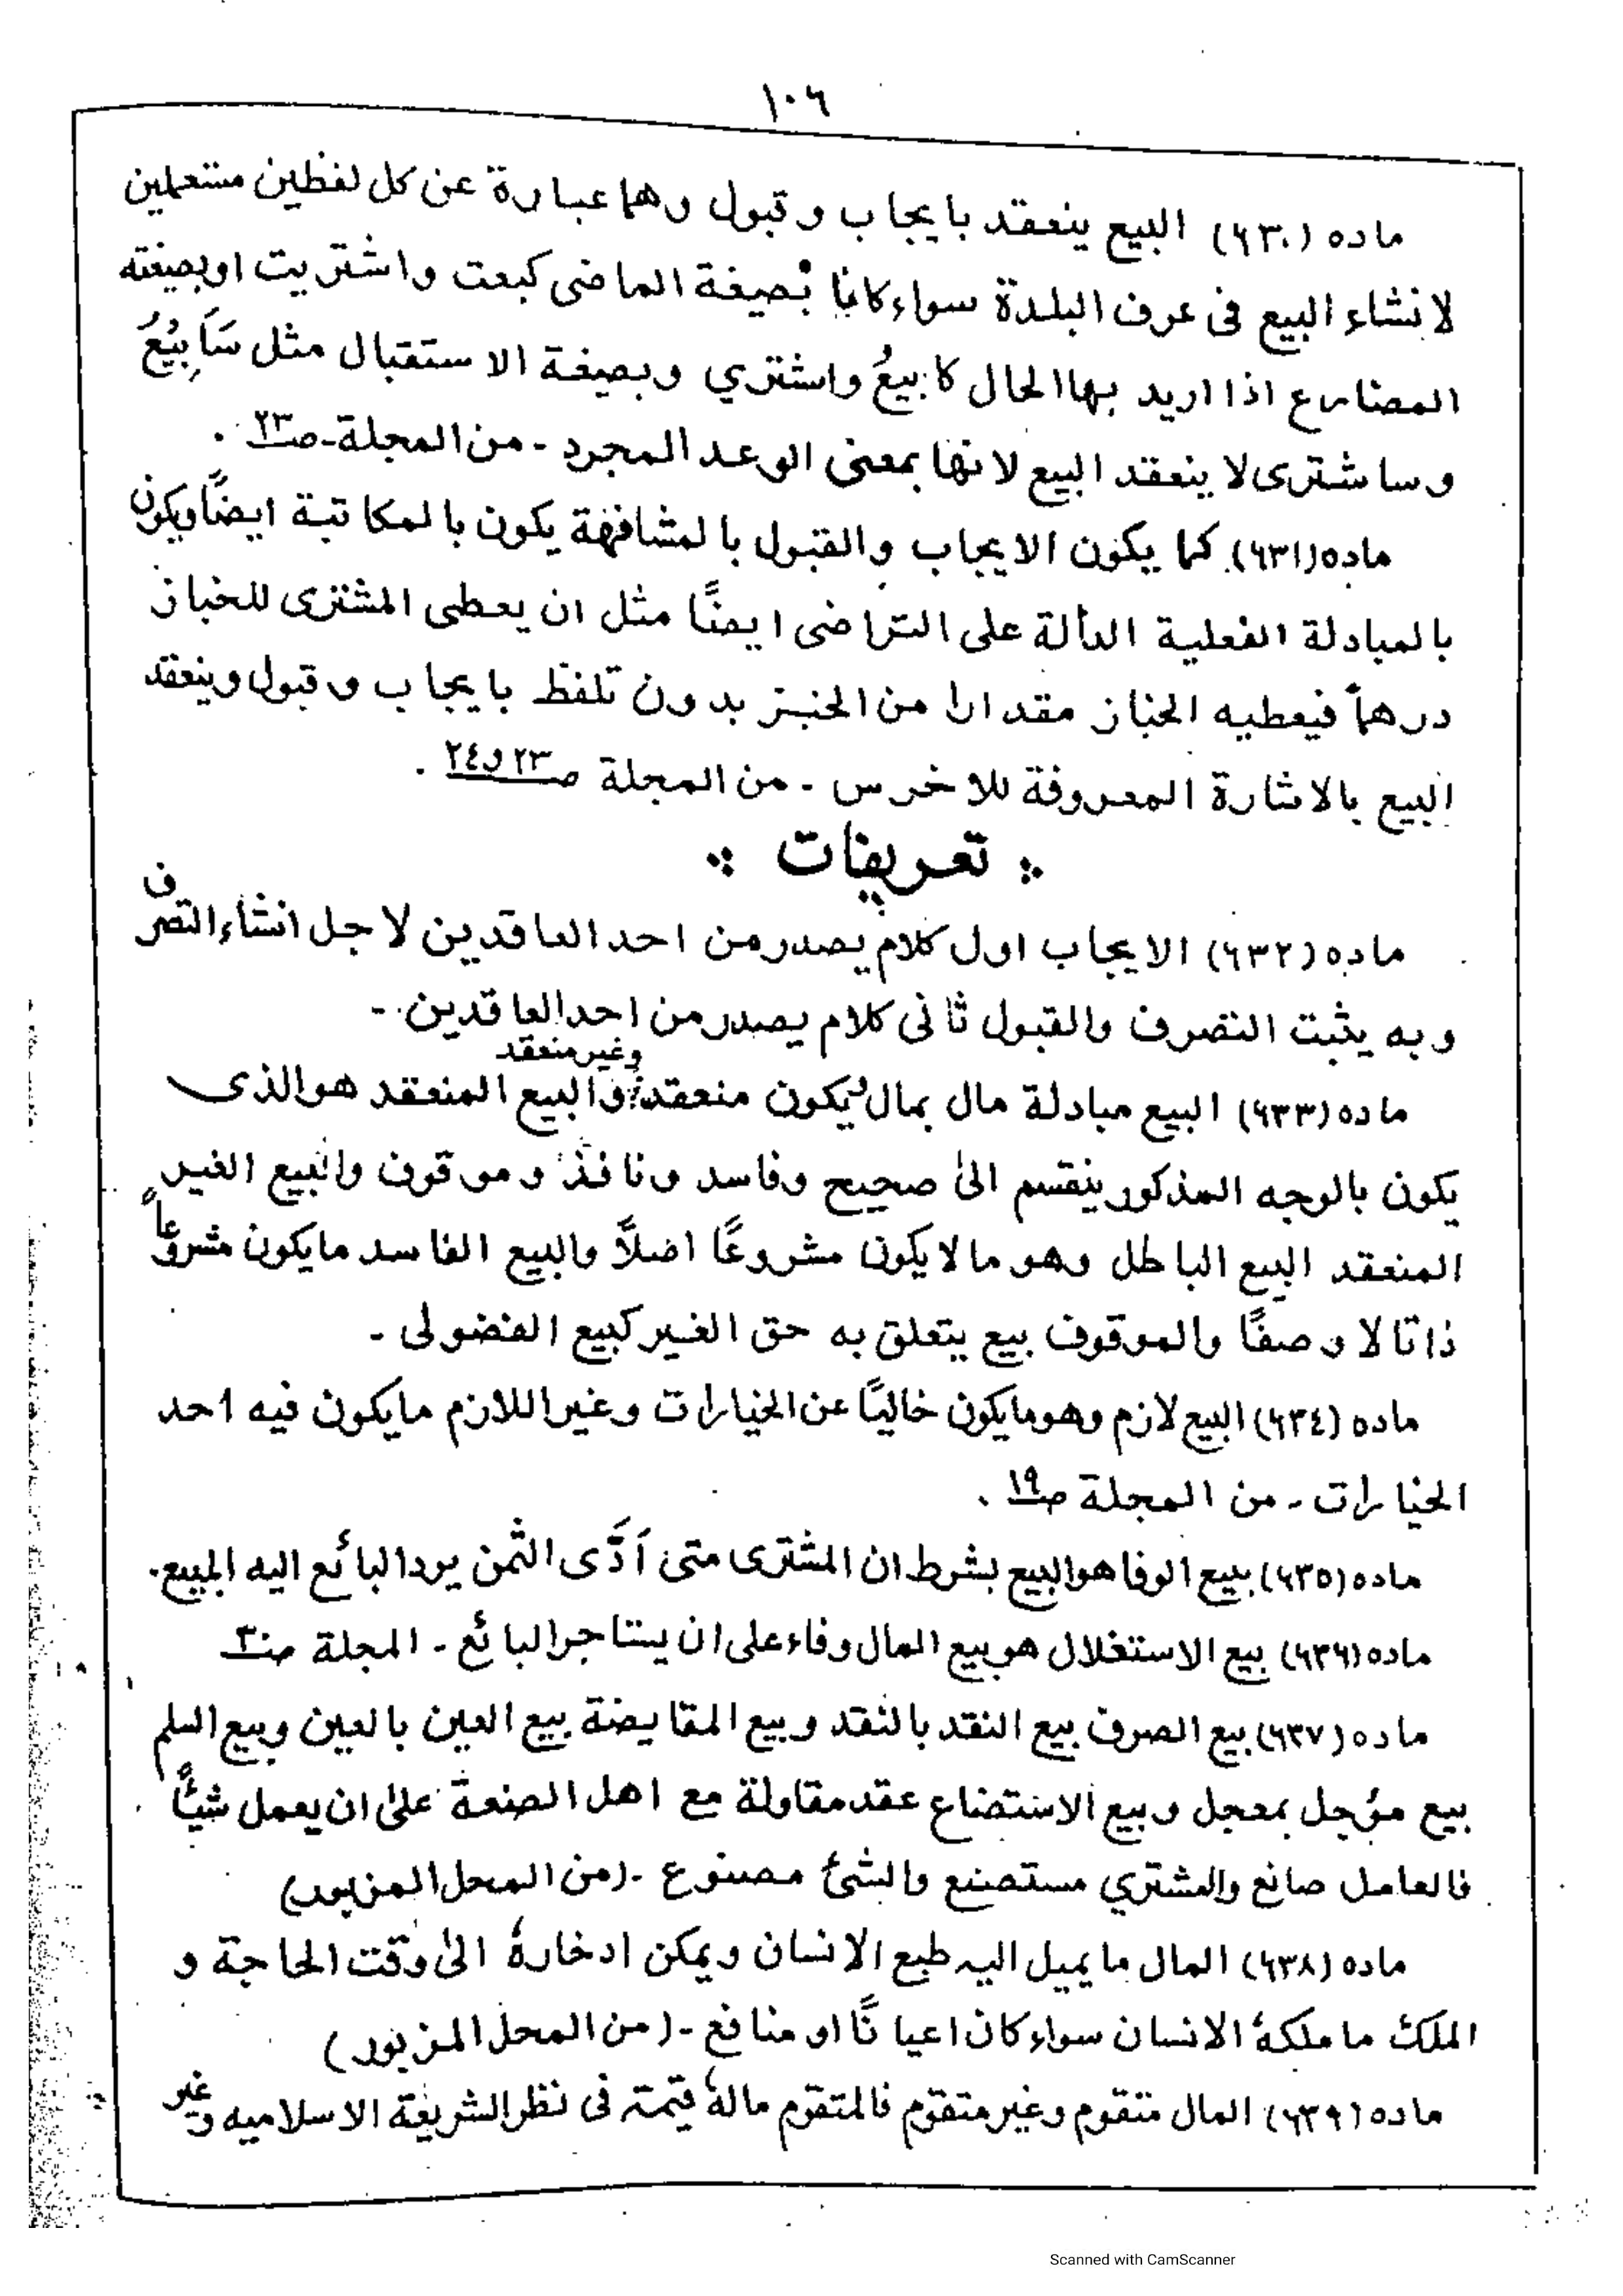 ١٠٦
ماده (٦٣٠) البيع ينعقد بايجاب و قبول وهما عبارة عن كل لفظين مستعملين
لانشاء البيع فى عرف البلدة سواء كانا بصيغة الماضى كبعت واشتريت او بصيغته
المضارع اذا اريد بها الحال كابيعُ واشتري وبصيغة الاستقبال مثل سَاَبِيْعُ
وساشترى لا ينعقد البيع لانها بمعنى الوعد المجرد - من المجلة - صـ٢٣ .
ماده (٦٣١) كما يكون الايجاب والقبول بالمشافهة يكون بالمكاتبة ايضًا ويكون
بالمبادلة الفعلية الدالة على التراضى ايضًا مثل ان يعطى المشترى للخباز
درهمًا فيعطيه الخباز مقدارا من الخبز بدون تلفظ بايجاب و قبول وينعقد
البيع بالاشارة المعروفة للاخرس - من المجلة صـ ٢٣ و ٢٤ .
تعريفات
ماده (٦٣٢) الايجاب اول كلام يصدر من احد العاقدين لاجل انشاء التصرف
وبه يثبت التصرف والقبول ثانى كلام يصدر من احد العاقدين -
ماده (٦٣٣) البيع مبادلة مال بمال ليكون منعقدا وغير منعقد والبيع المنعقد هو الذى
يكون بالوجه المذكور ينقسم الىٰ صحيح وفاسد ونافذ و موقون والبيع الغير
المنعقد البيع الباطل وهو ما لا يكون مشروعًا اصلاً والبيع الفاسد ما يكون مشروعاً
ذاتا لا وصفًا والموقوف بيع يتعلق به حق الغير كبيع الفضولى -
ماده (٦٣٤) البيع لازم وهو ما يكون خاليًا عن الخيارات وغير اللازم ما يكون فيه احد
الخيارات - من المجلة صـ١٩ .
ماده (٦٣٥) بيع الوفا هو البيع بشرط ان المشترى متى اَدَّى الثمن يرد البائع اليه المبيع.
ماده (٦٣٦) بيع الاستغلال هو بيع المال وفاء على ان يستاجر البائع - المجلة صـ٣
ماده (٦٣٧) بيع الصرف بيع النقد بالنقد و بيع المقايضة بيع العين بالعين وبيع السلم
بيع مؤجل بمعجل و بيع الاستضاع عقد مقاولة مع اهل الصنعة علىٰ ان يعمل شيئًا
فالعامل صانع والمشتري مستصنع والشئ مصنوع - (من المحل المزبور)
ماده (٦٣٨) المال ما يميل اليه طبع الانسان ويمكن ادخارهٗ الىٰ وقت الحاجة و
الملك ما ملكهٗ الانسان سواء كان اعيانًا او منافع - (من المحل المزبور)
ماده (٦٣٩) المال متقوم وغير متقوم فالمتقوم مالهٗ قيمته فى نظر الشريعة الاسلاميه وغير
Scanned with CamScanner